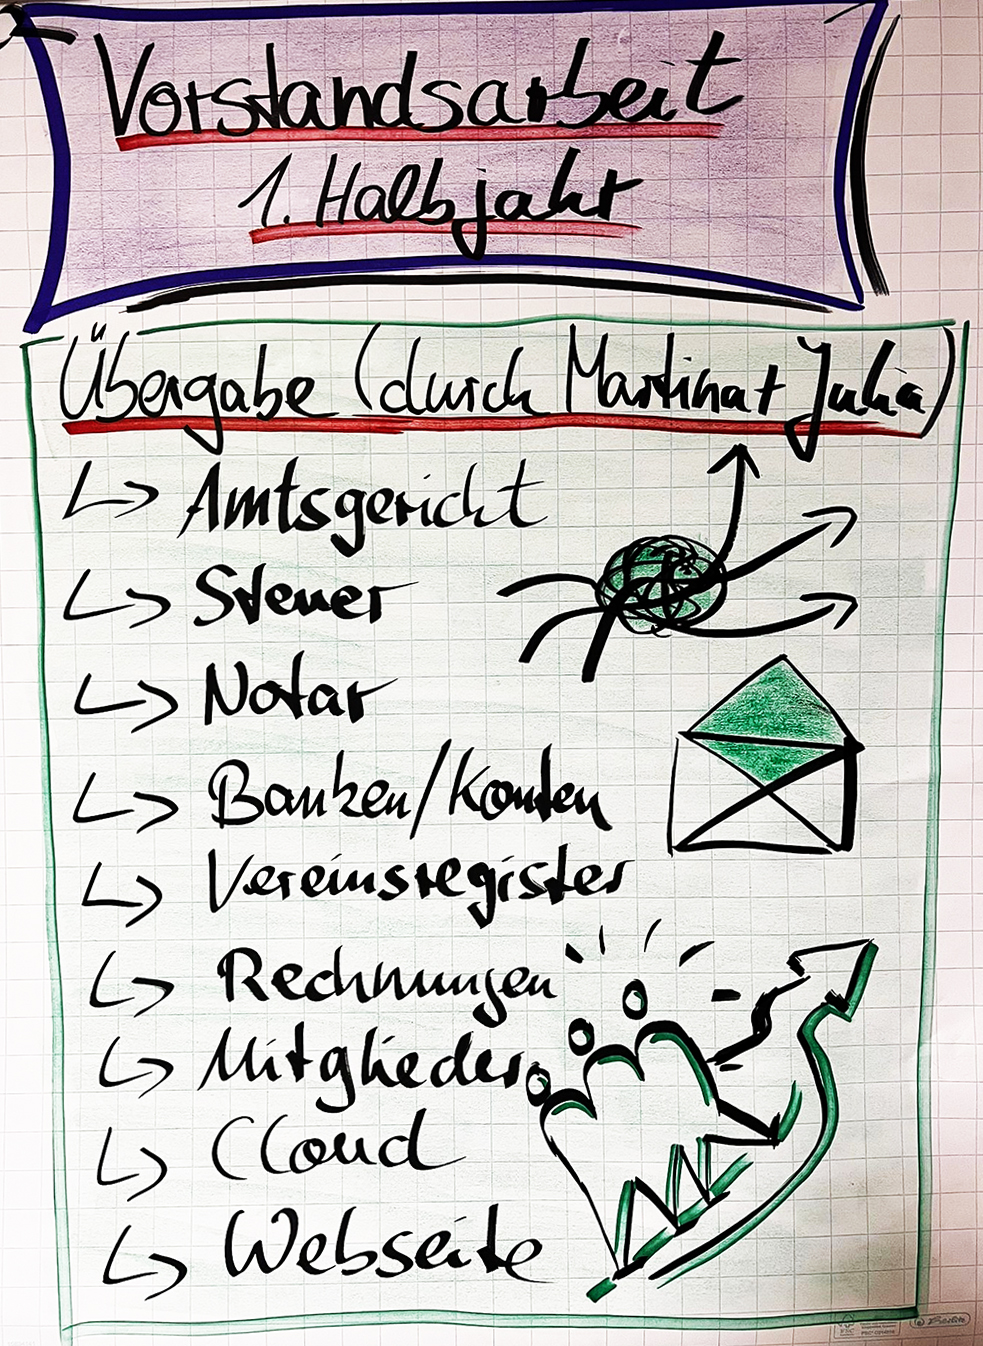 Vorstandsarbeit
1. Halbjahr
Übergabe (durch Martina + Julia)
Amtsgericht
Steuer
Notar
Banken/Konten
Vereinsregister
Rechnungen
Mitglieder
Cloud
Webseite